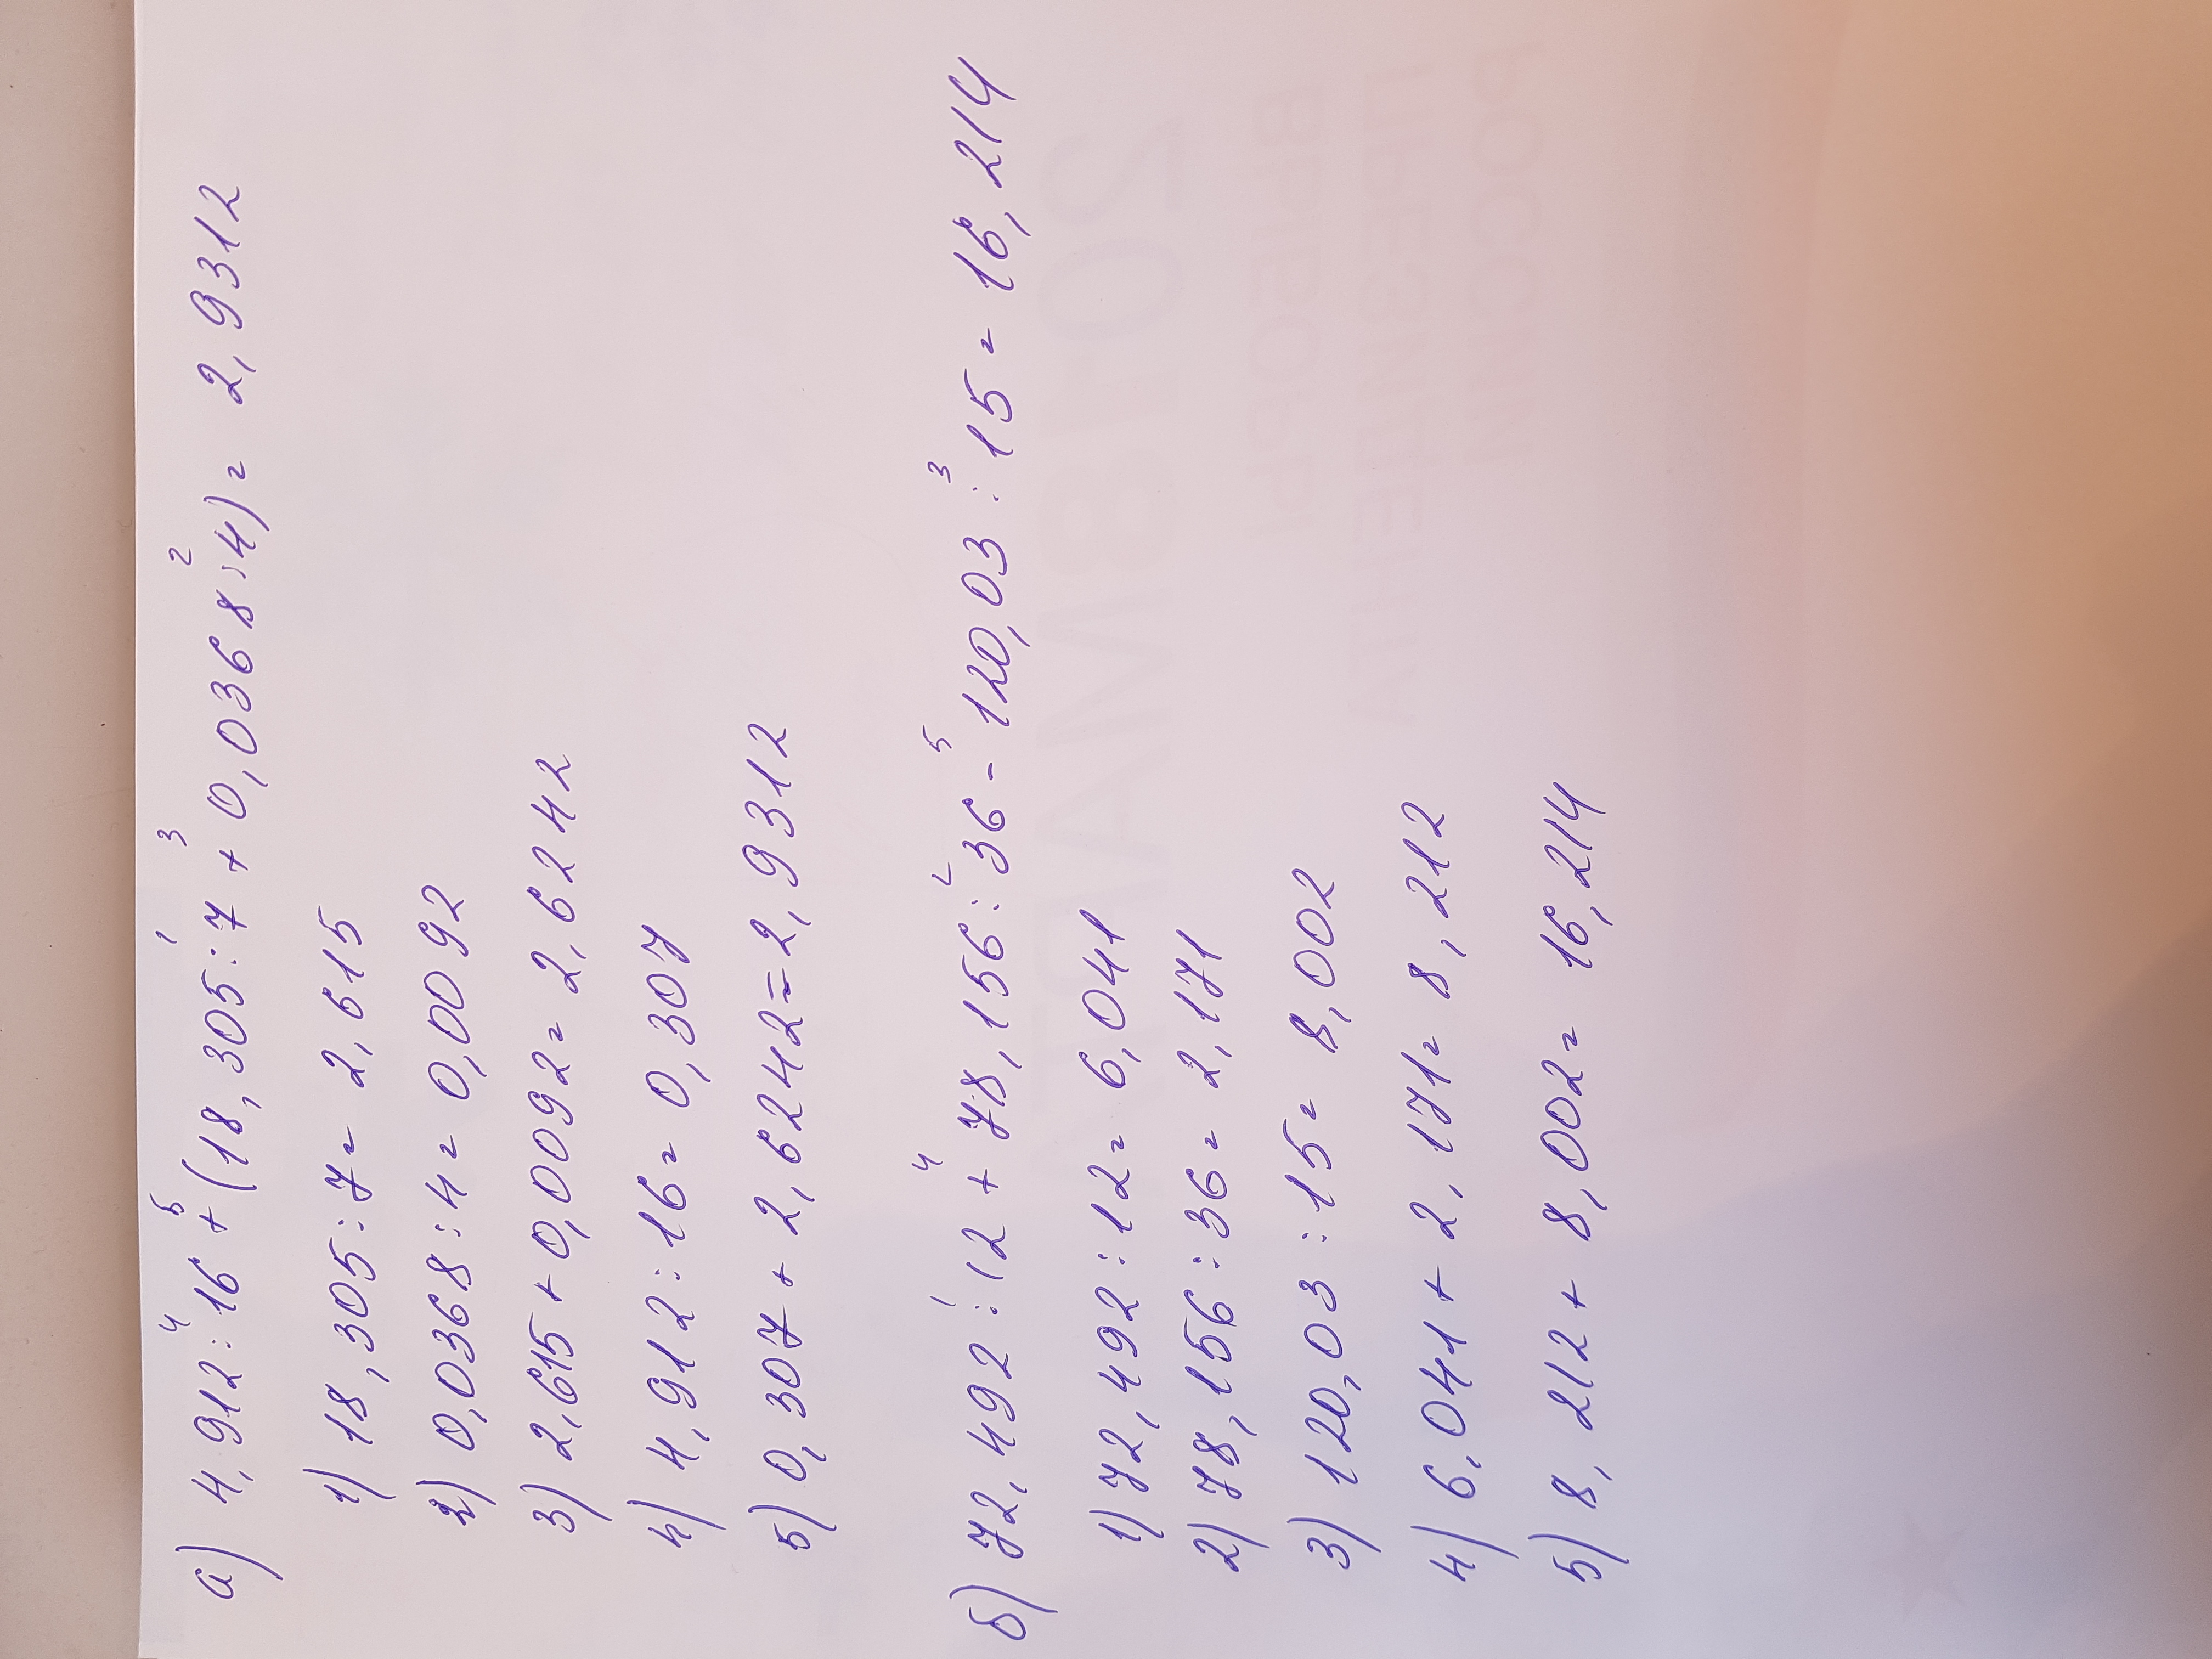 а) 4,912 : 16 + (18,305 : 7 + 0,0368 : 4) = 2,9312
1) 18,305 : 7 = 2,615
2) 0,0368 : 4 = 0,0092
3) 2,615 + 0,0092 = 2,6242
4) 4,912 : 16 = 0,307
5) 0,307 + 2,6242 = 2,9312
б) 72,492 : 12 + 78,156 : 36 - 120,03 : 15 = 16,214
1) 72,492 : 12 = 6,041
2) 78,156 : 36 = 2,171
3) 120,03 : 15 = 8,002
4) 6,041 + 2,171 = 8,212
5) 8,212 + 8,002 = 16,214